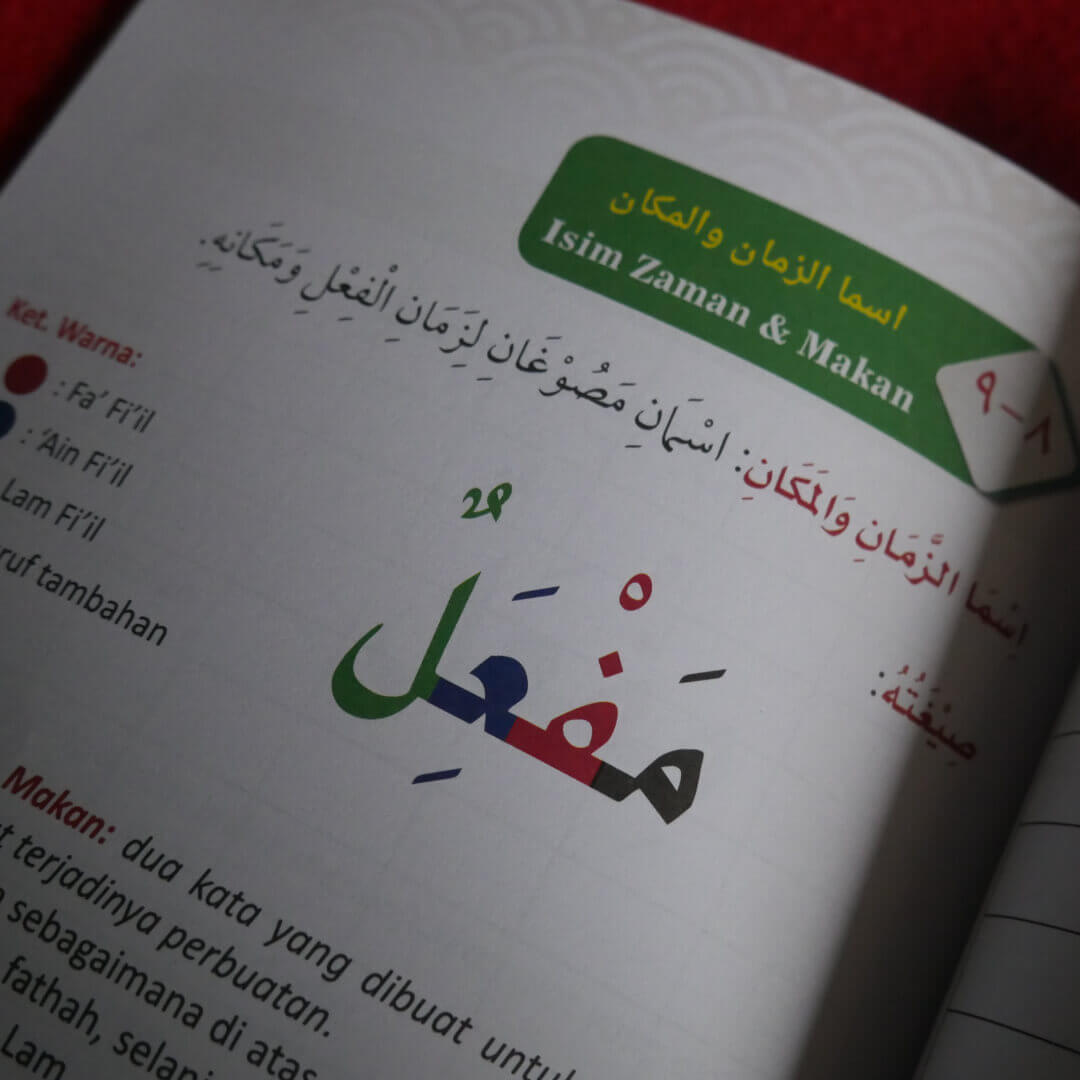 اسما الزمان والمكان
Isim Zaman & Makan
٨-٩
اِسْمَا الزَّمَانِ وَالْمَكَانِ: اسْمَانِ مَصُوْغَانِ لِزَمَانِ الْفِعْلِ وَمَكَانِهِ.
صِيْغَتُهُ:
Ket. Warna:
: Fa' Fi'il
: 'Ain Fi'il
Lam Fi'il
tambahan
مَفْعَِلٌ
Makan: dua kata yang dibuat
terjadinya perbuatan.
sebagaimana di atas
fathah,
Lam